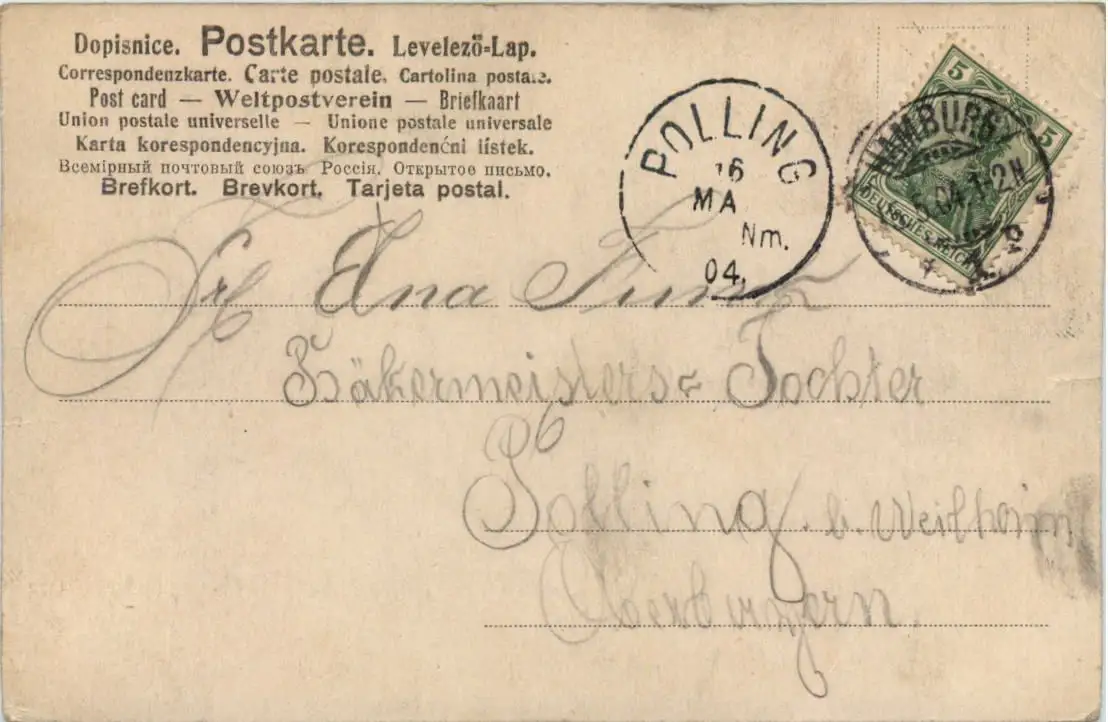 Dopisnice. Postkarte. Levelező-Lap.
Correspondenzkarte. Carte postale. Cartolina postale.
Post card — Weltpostverein — Briefkaart
Union postale universelle — Unione postale universale
Karta korespondencyjna. Korespondenčni listek.
Всемірный почтовый союзъ Россія. Открытое письмо.
Brefkort. Brevkort. Tarjeta postal.
POLLING
16
MA
Nm.
04.
HAMBURG
5.04.1-2N
5
5
DEUTSCHES REICH
Frl Ena
Bäkermeisters- Tochter
Polling b. Weilheim